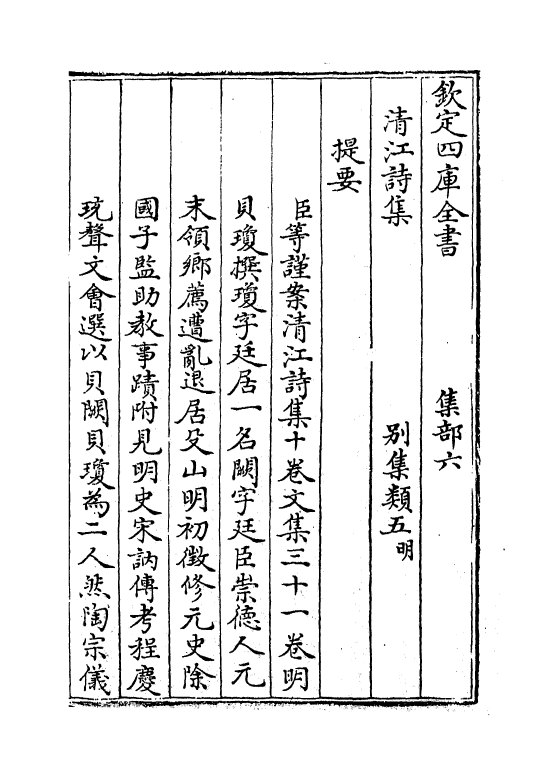 欽定四庫全書　集部六
清江詩集　別集類五明
提要
臣等謹案清江詩集十卷文集三十一卷明
貝瓊撰瓊字廷居一名闕字廷臣崇德人元
末領鄉薦遭亂退居殳山明初徵修元史除
國子監助教事蹟附見明史宋訥傳考程慶
玩聲文會選以貝闕貝瓊為二人然陶宗儀